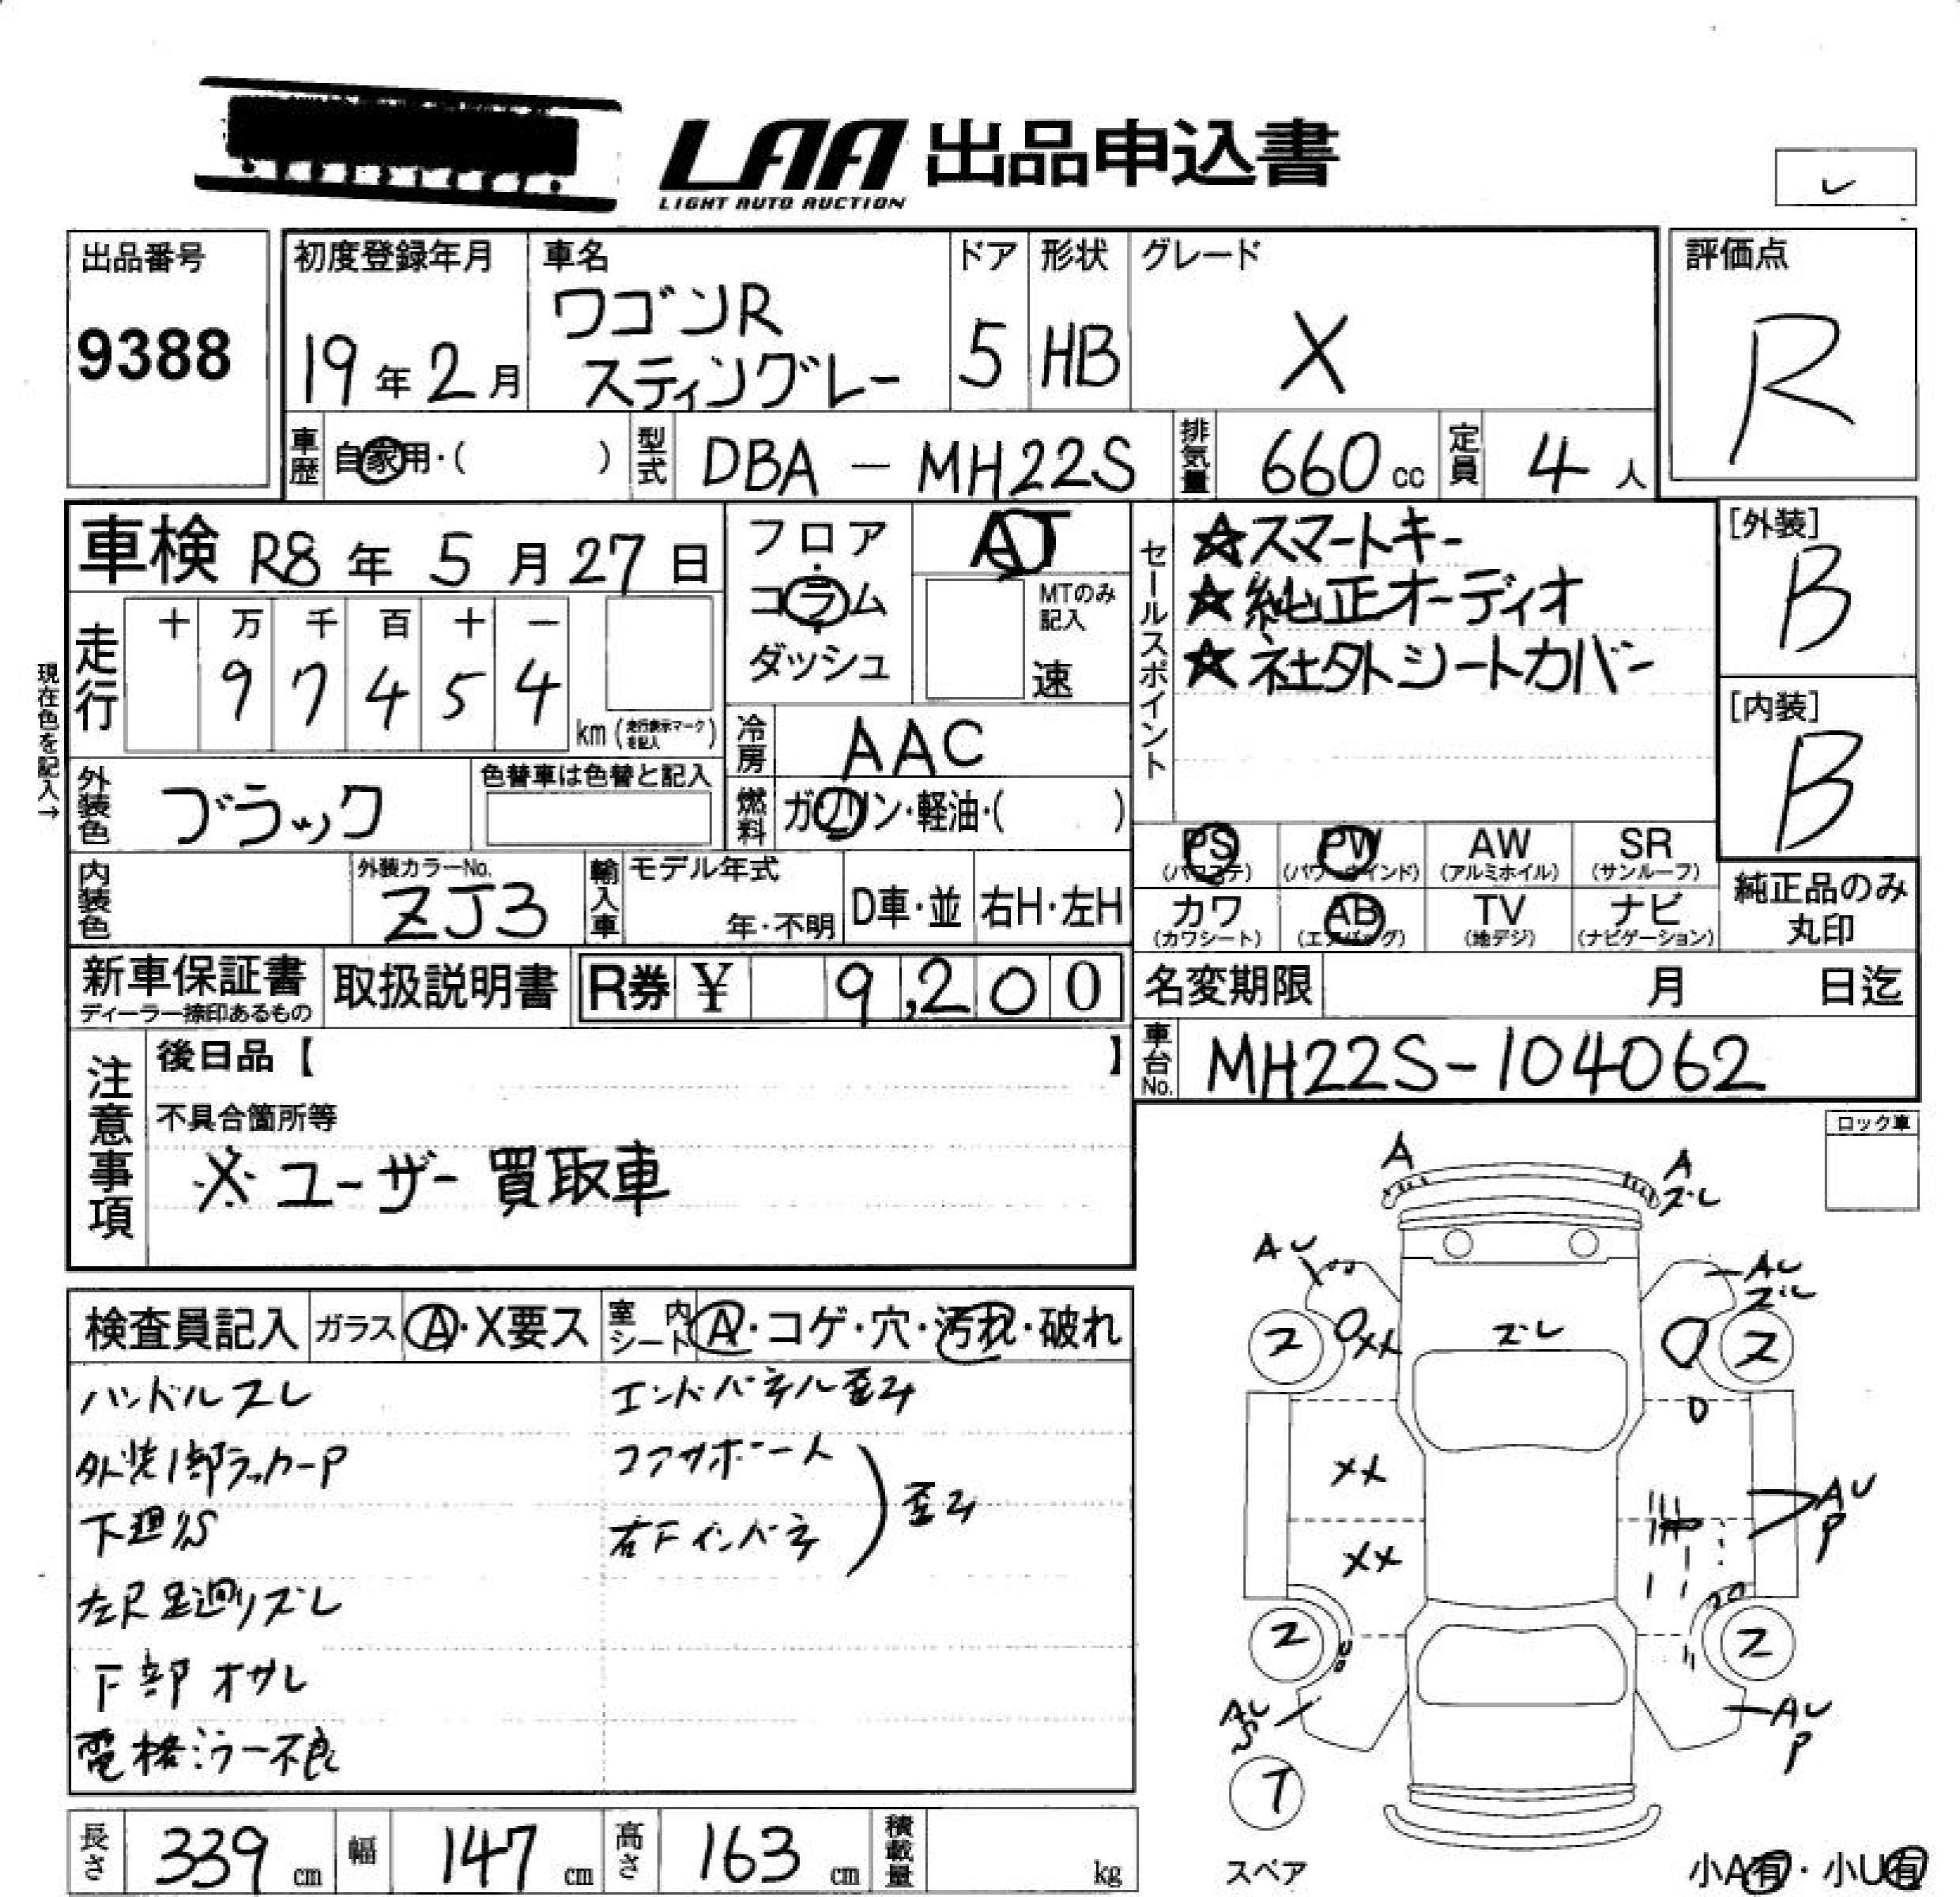 LAA 出品申込書
LIGHT AUTO AUCTION
出品番号
9388
初度登録年月
19年2月
車名
ワゴンR
スティングレー
ドア
5
形状
HB
グレード
X
評価点
R
車歴 自家用・( )
型式 DBA - MH22S
排気量 660 cc
定員 4 人
車検 R8年5月27日
現在色を記入→
走行
十 万 千 百 十 一
9 7 4 5 4
km(走行表示マークを記入)
フロア
コラム
ダッシュ
AT
MTのみ記入
速
冷房 AAC
燃料 ガソリン・軽油・( )
セールスポイント
☆スマートキー
☆純正オーディオ
☆社外シートカバー
[外装]
B
[内装]
B
外装色 ブラック
色替車は色替と記入
内装色
外装カラーNo.
ZJ3
輸入車 モデル年式
年・不明
D車・並
右H・左H
PS (パワステ)
PW (パワーウインド)
AW (アルミホイル)
SR (サンルーフ)
カワ (カワシート)
AB (エアバッグ)
TV (地デジ)
ナビ (ナビゲーション)
純正品のみ
丸印
新車保証書
ディーラー捺印あるもの
取扱説明書
R券 ¥ 9,200
名変期限 月 日迄
車台No. MH22S-104062
注意事項
後日品【 】
不具合箇所等
※ユーザー買取車
ロック車
検査員記入
ガラス A・X要ス
室内シート A・コゲ・穴・汚れ・破れ
ハンドルスレ
外装1部ラッカーP
下廻りS
左R足廻りズレ
下部オサレ
電格ミラー不良
エンドパネル歪み
コアサポート
右Fインパネ
歪み
A
A
ズレ
AU
AU
ズレ
ズレ
2
2
XX
XX
XX
AU
P
2
2
AU
S
AU
P
T
スペア
小A有・小U有
長さ 339 cm
幅 147 cm
高さ 163 cm
積載量 kg